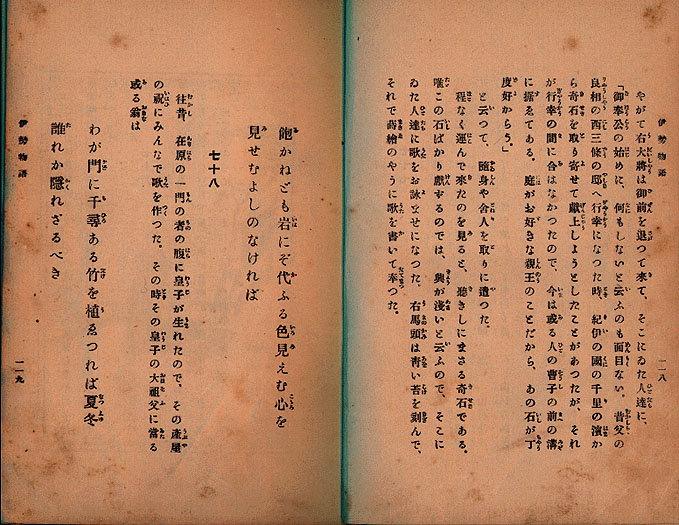 やがて右大將は御前を退つて來て、そこにゐた人達に、
「御奉公の始めに、何もしないと云ふのも面目ない。昔父の
良相の西三條の邸へ行幸になつた時、紀伊の國の千里の濱か
ら奇石を取り寄せて獻上しようとしたことがあつたが、それ
が行幸の間に合はなかつたので、今は或る人の曹子の前の溝
に据ゑてある。庭がお好きな親王のことだから、あの石が丁
度好からう。」
と云つて、隨身や舍人を取りに遣つた。
程なく運んで來たのを見ると、聽きしにまさる奇石である。
唯この石ばかり獻するのでは、興が淺いと云ふので、そこに
ゐた人達に歌をお詠ませになつた。右馬頭は靑い苔を刻んで、
それで蒔繪のやうに歌を書いて奉つた。
一一八
飽かねども岩にぞ代ふる色見えむ心を
見せむよしのなければ
七十八
往昔、在原の一門の者の腹に皇子が生れたので、その產屋
の祝にみんなで歌を作つた。その時その皇子の大祖父に當る
或る翁は
わが門に千尋ある竹を植ゑつれば夏冬
誰れか隱れざるべき
伊勢物語
一一九